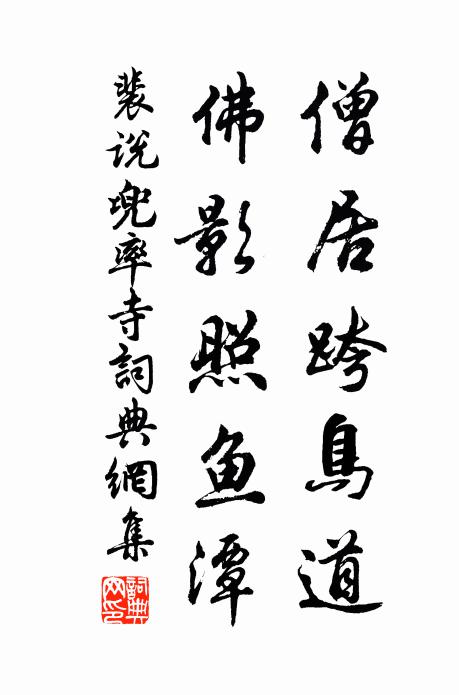 僧居跨鳥道
佛影照鱼潭
裴说兜率寺詞典網集
詞典網印